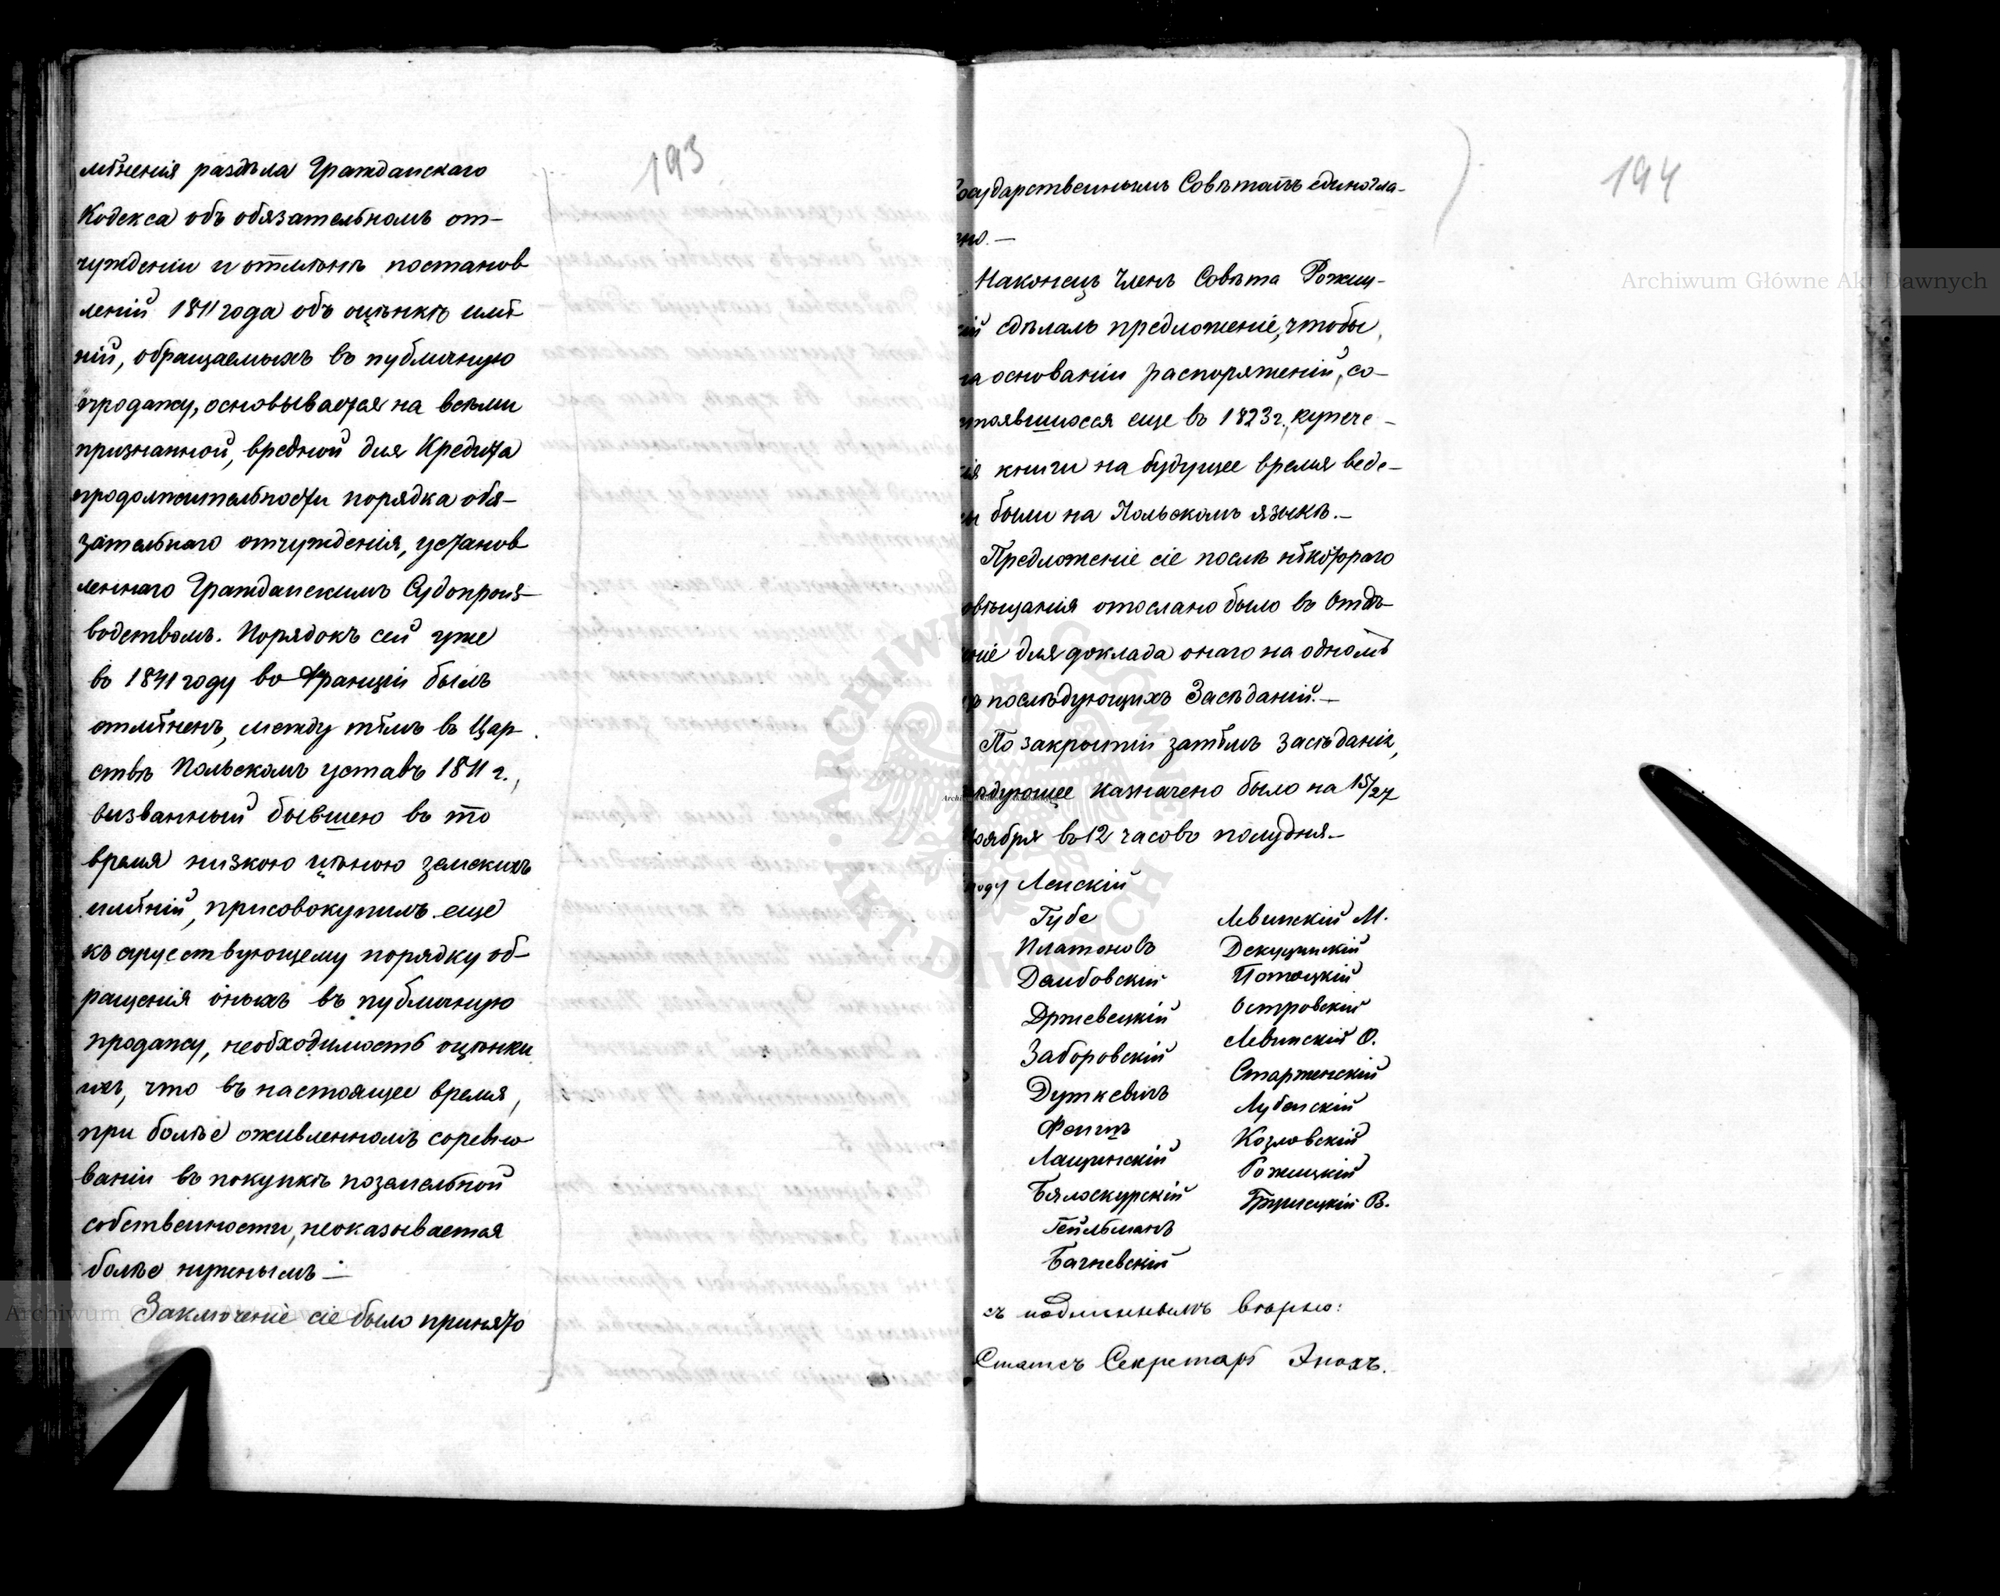 193
мѣненія раздѣла Гражданскаго
Кодекса объ обязательномъ от-
чужденіи и отмѣнѣ постанов
леній 1811 года объ оцѣнкѣ имѣ
ній, обращаемыхъ въ публичную
продажу, основывается на всѣми
признанной, вредной для Кредита
продолжительности порядка обя-
зательнаго отчужденія, установ
леннаго Гражданскимъ Судопроиз-
водствомъ. Порядокъ сей уже
въ 1841 году во Франціи былъ
отмѣненъ, между тѣмъ въ Цар
ствѣ Польскомъ уставъ 1811 г.,
вызванный бывшею въ то
время низкою цѣною земскихъ
имѣній, присовокупилъ еще
къ существующему порядку об-
ращенія оныхъ въ публичную
продажу, необходимость оцѣнки
ихъ, что въ настоящее время,
при болѣе оживленномъ соревно
ваніи въ покупкѣ поземельной
собственности, неоказывается
болѣе нужнымъ.—
Заключеніе сіе было принято
194
Государственнымъ Совѣтомъ единогла-
сно.—
Наконецъ Членъ Совѣта Рожиц-
кій сдѣлалъ предложеніе, чтобы,
на основаніи распоряженій, со-
стоявшихся еще въ 1823 г., купече-
скія книги на будущее время веде-
ны были на Польскомъ языкѣ.—
Предложеніе сіе послѣ нѣкотораго
совѣщанія отослано было въ Отдѣ-
леніе для доклада онаго на одномъ
изъ послѣдующихъ Засѣданій.—
По закрытіи затѣмъ Засѣданія,
слѣдующее назначено было на 15/27
Ноября въ 12 часовъ полудня.—
Ленскій
Губе
Платоновъ
Дембовскій
Држевецкій
Заборовскій
Дуткевичъ
Фенщъ
Лащинскій
Бялоскурскій
Гейльманъ
Багневскій
Левинскій М.
Декуцинскій
Потоцкій
Островскій
Левинскій О.
Старженскій
Лубенскій
Козловскій
Рожицкій
В.
съ подлиннымъ вѣрно:
Статсъ Секретарь Энохъ.
Archiwum Główne Akt Dawnych